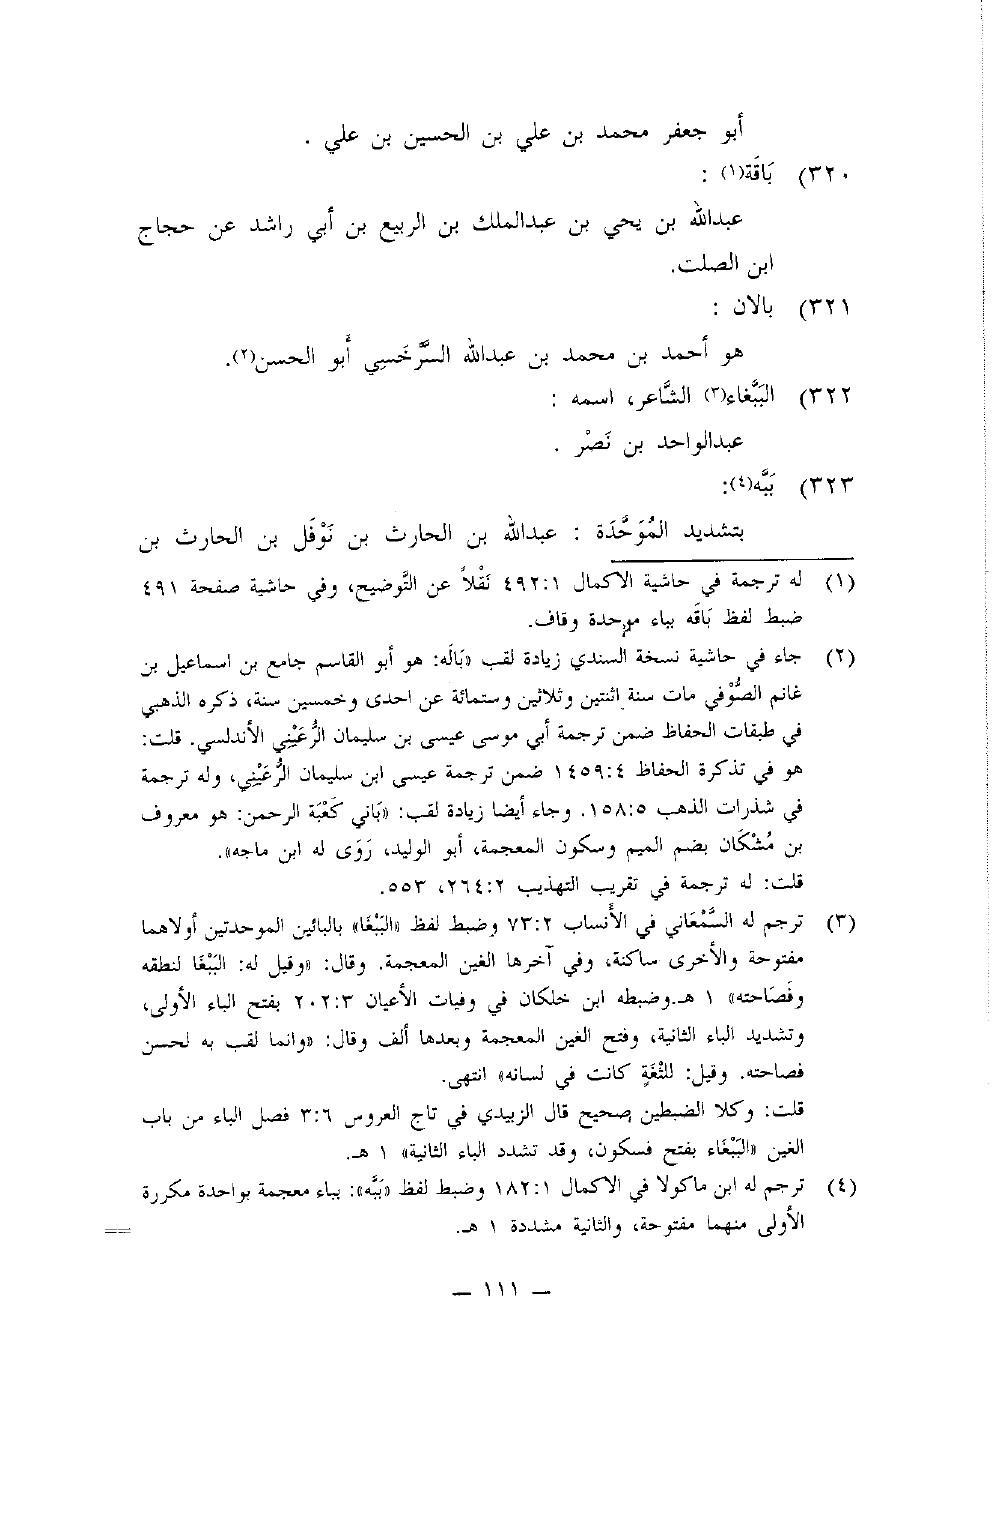 أبو جعفر محمد بن علي بن الحسين بن علي .
٣٢٠) بَاقَة(١) :
عبدالله بن يحي بن عبدالملك بن الربيع بن أبي راشد عن حجاج
ابن الصلت.
٣٢١) بالان :
هو أحمد بن محمد بن عبدالله السَّرْخَسِي أَبو الحسن(٢).
٣٢٢) البَبَّغاء(٣) الشَّاعر، اسمه :
عبدالواحد بن نَصْر .
٣٢٣) بَبَّه(٤):
بتشديد المُوَحَّدَة : عبدالله بن الحارث بن نَوْفَل بن الحارث بن
(١) له ترجمة في حاشية الاكمال ٤٩٢:١ نَقْلاً عن التَّوضيح، وفي حاشية صفحة ٤٩١
ضبط لفظ بَاقَه بباء موحدة وقاف.
(٢) جاء في حاشية نسخة السندي زيادة لقب «بَالَه: هو أبو القاسم جامع بن اسماعيل بن
غانم الصُّوْفي مات سنة اثنتين وثلاثين وستمائة عن احدى وخمسين سنة، ذكره الذهبي
في طبقات الحفاظ ضمن ترجمة أبي موسى عيسى بن سليمان الرُّعَيْنِي الأندلسي. قلت:
هو في تذكرة الحفاظ ١٤٥٩:٤ ضمن ترجمة عيسى ابن سليمان الرُّعَيْنِي، وله ترجمة
في شذرات الذهب ١٥٨:٥. وجاء أيضا زيادة لقب: «بَاني كَعْبَة الرحمن: هو معروف
بن مُشْكَان بضم الميم وسكون المعجمة، أبو الوليد، رَوَى له ابن ماجه».
قلت: له ترجمة في تقريب التهذيب ٢٦٤:٢، ٥٥٣.
(٣) ترجم له السَّمْعَاني في الأَنساب ٧٣:٢ وضبط لفظ «البَبْغَا» بالبائين الموحدتين أولاهما
مفتوحة والأخرى ساكنة، وفي آخرها الغين المعجمة. وقال: «وقيل له: البَبْغَا لنطقه
وفَصَاحته» ١ هـ.وضبطه ابن خلكان في وفيات الأعيان ٢٠٢:٣ بفتح الباء الأولى،
وتشديد الباء الثانية، وفتح الغين المعجمة وبعدها ألف وقال: «وانما لقب به لحسن
فصاحته. وقيل: لِلثْغَةٍ كانت في لسانه» انتهى.
قلت: وكلا الضبطين صحيح قال الزبيدي في تاج العروس ٣:٦ فصل الباء من باب
الغين «البَبْغَاء بفتح فسكون، وقد تشدد الباء الثانية» ١ هـ.
(٤) ترجم له ابن ماكولا في الاكمال ١٨٢:١ وضبط لفظ «بَبَّه»: بباء معجمة بواحدة مكررة
الأولى منهما مفتوحة، والثانية مشددة ١ هـ. ==
— ١١١ —